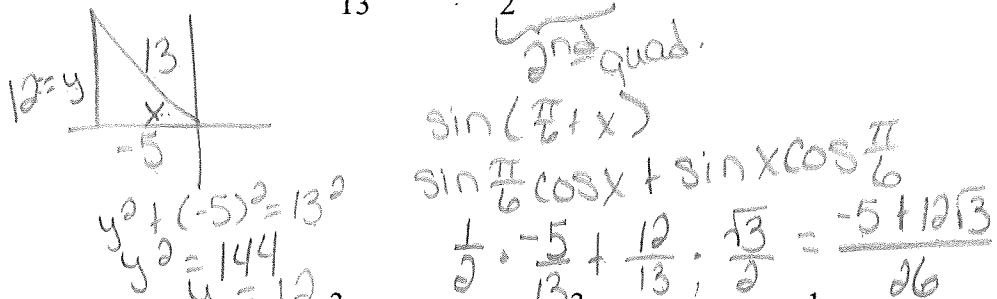 13 2
2nd quad.
13
12=y
x
-5
sin(π/6 + x)
sin π/6 cosx + sinx cos π/6
y² + (-5)² = 13²
y² = 144
y = 12
1/2 · -5/13 + 12/13 · √3/2 = (-5+12√3)/26